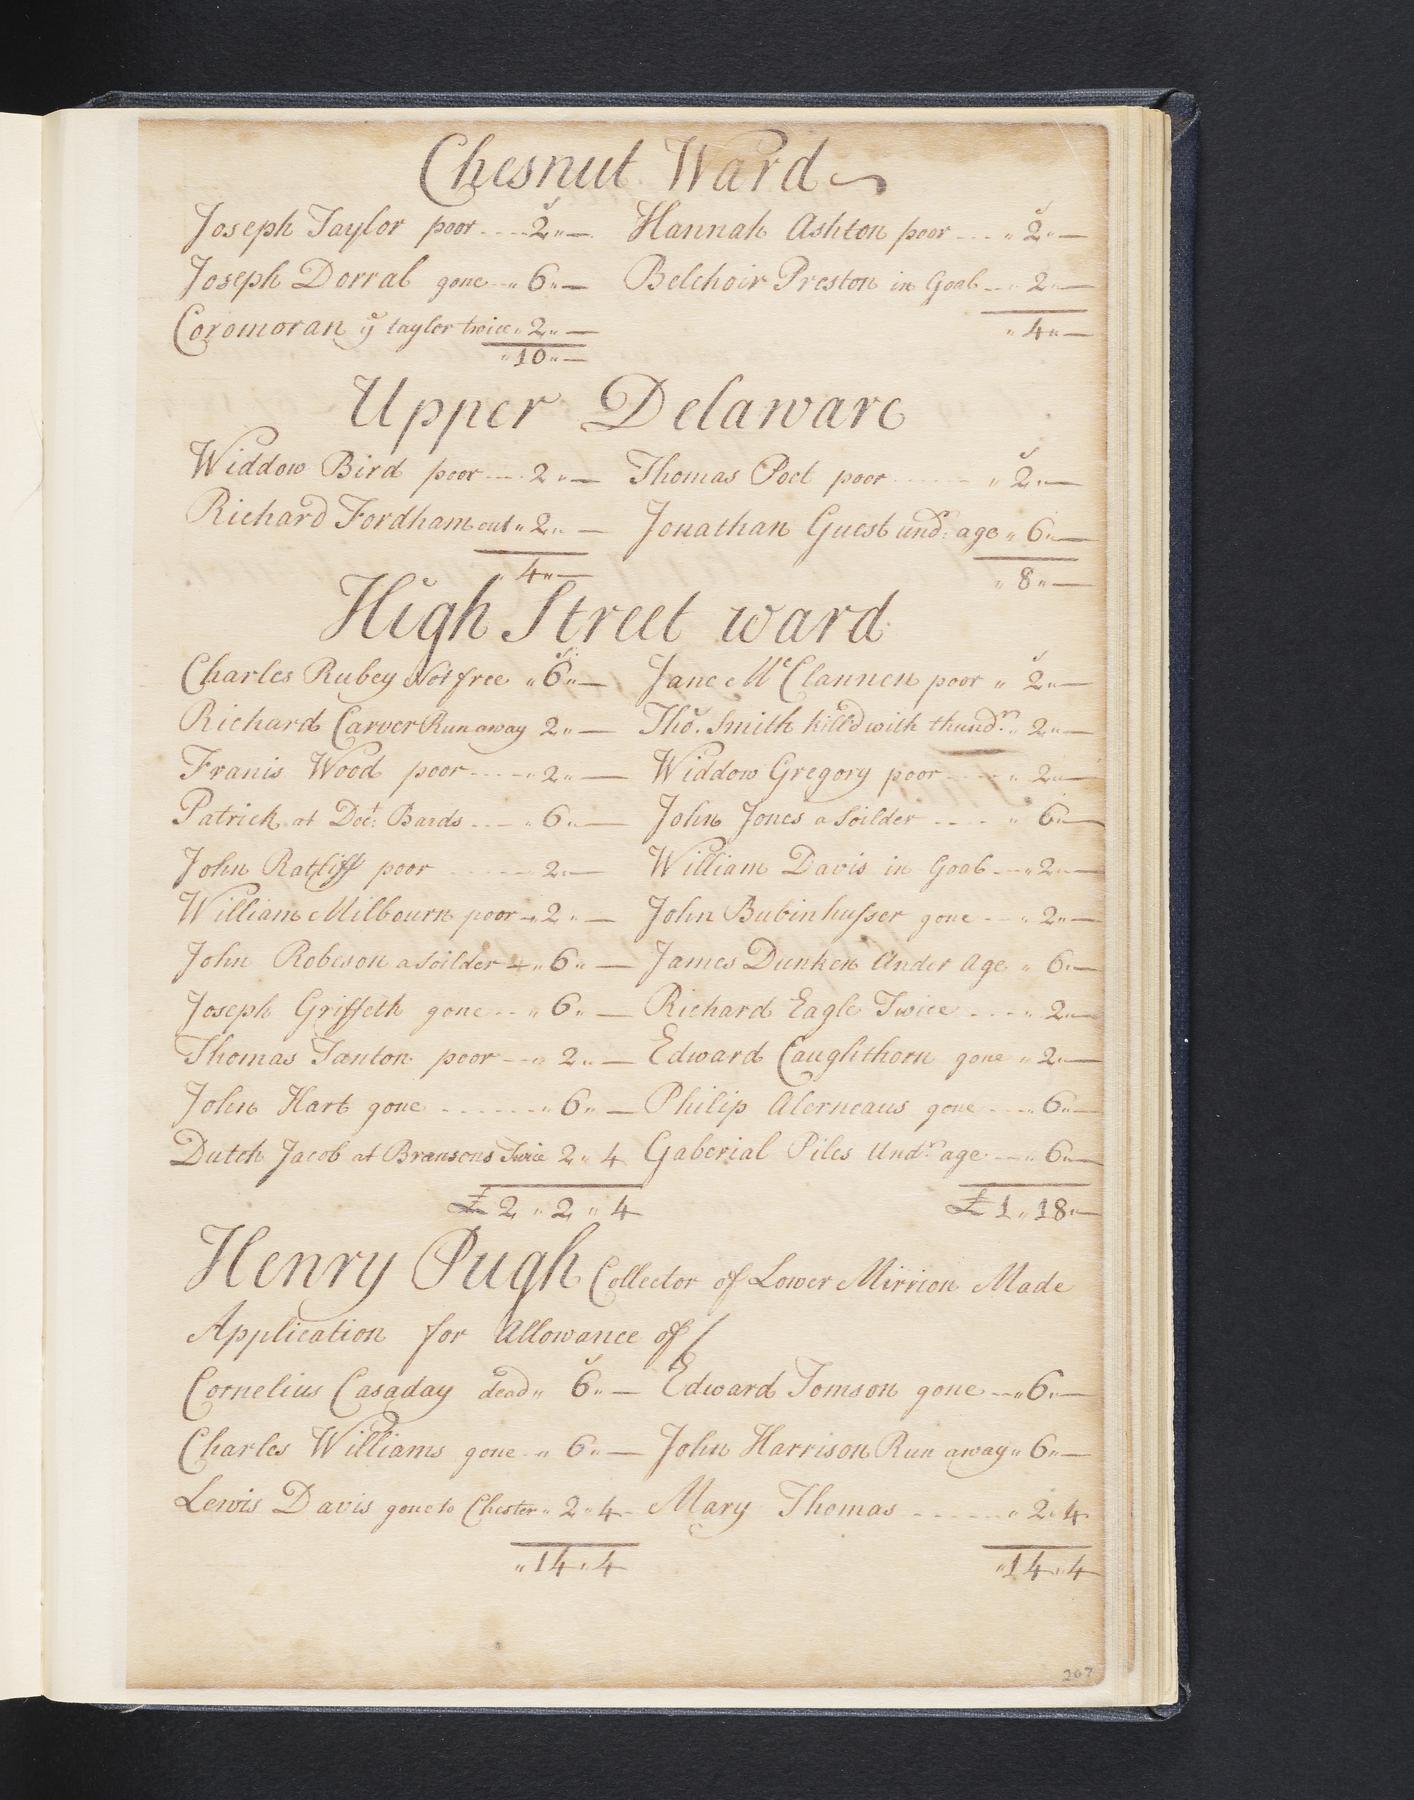 Chesnut Ward
Joseph Taylor poor ---- 2 „ — Hannah Ashton poor --- „ 2 „ —
Joseph Dorral gone -- „ 6 „ — Belchoir Preston in Goal --- 2 „ —
Coromoran ye taylor twice „ 2 „ — „ 4 „ —
„ 10 „ —
Upper Delaware
Widdow Bird poor ---- 2 „ — Thomas Poet poor ------ „ 2 „ —
Richard Fordham out „ 2 „ — Jonathan Guest undr: age „ 6 „ —
4 „ — „ 8 „ —
High Street ward
Charles Rubey Not free „ 6 „ — Jane McClannen poor „ 2 „ —
Richard Carver Run away 2 „ — Tho. Smith killd with thundr. „ 2 „ —
Franis Wood poor ---- „ 2 „ — Widdow Gregory poor ---- „ 2 „ —
Patrick at Doct: Bards --- „ 6 „ — John Jones a Soilder ---- „ 6 „ —
John Ratliff poor ------ 2 „ — William Davis in Goal --- „ 2 „ —
William Milbourn poor - „ 2 „ — John Bubinhusser gone --- „ 2 „ —
John Robeson a Soilder - „ 6 „ — James Dunken Under Age „ 6 „ —
Joseph Griffeth gone --- „ 6 „ — Richard Eagle Twice ---- „ 2 „ —
Thomas Tanton poor --- „ 2 „ — Edward Caughthorn gone „ 2 „ —
John Hart gone ------- „ 6 „ — Philip Alerneaus gone ---- „ 6 „ —
Dutch Jacob at Bransons Twice 2 „ 4 Gaberial Piles Undr. age --- „ 6 „ —
£ 2 „ 2 „ 4 £ 1 „ 18 „ —
Henry Pugh Collector of Lower Mirrion Made
Application for Allowance of /
Cornelius Casaday dead „ 6 „ — Edward Tomson gone --- „ 6 „ —
Charles Williams gone -- „ 6 „ — John Harrison Run away „ 6 „ —
Lewis Davis gone to Chester „ 2 „ 4 - Mary Thomas ------ „ 2 „ 4
„ 14 „ 4 „ 14 „ 4
267